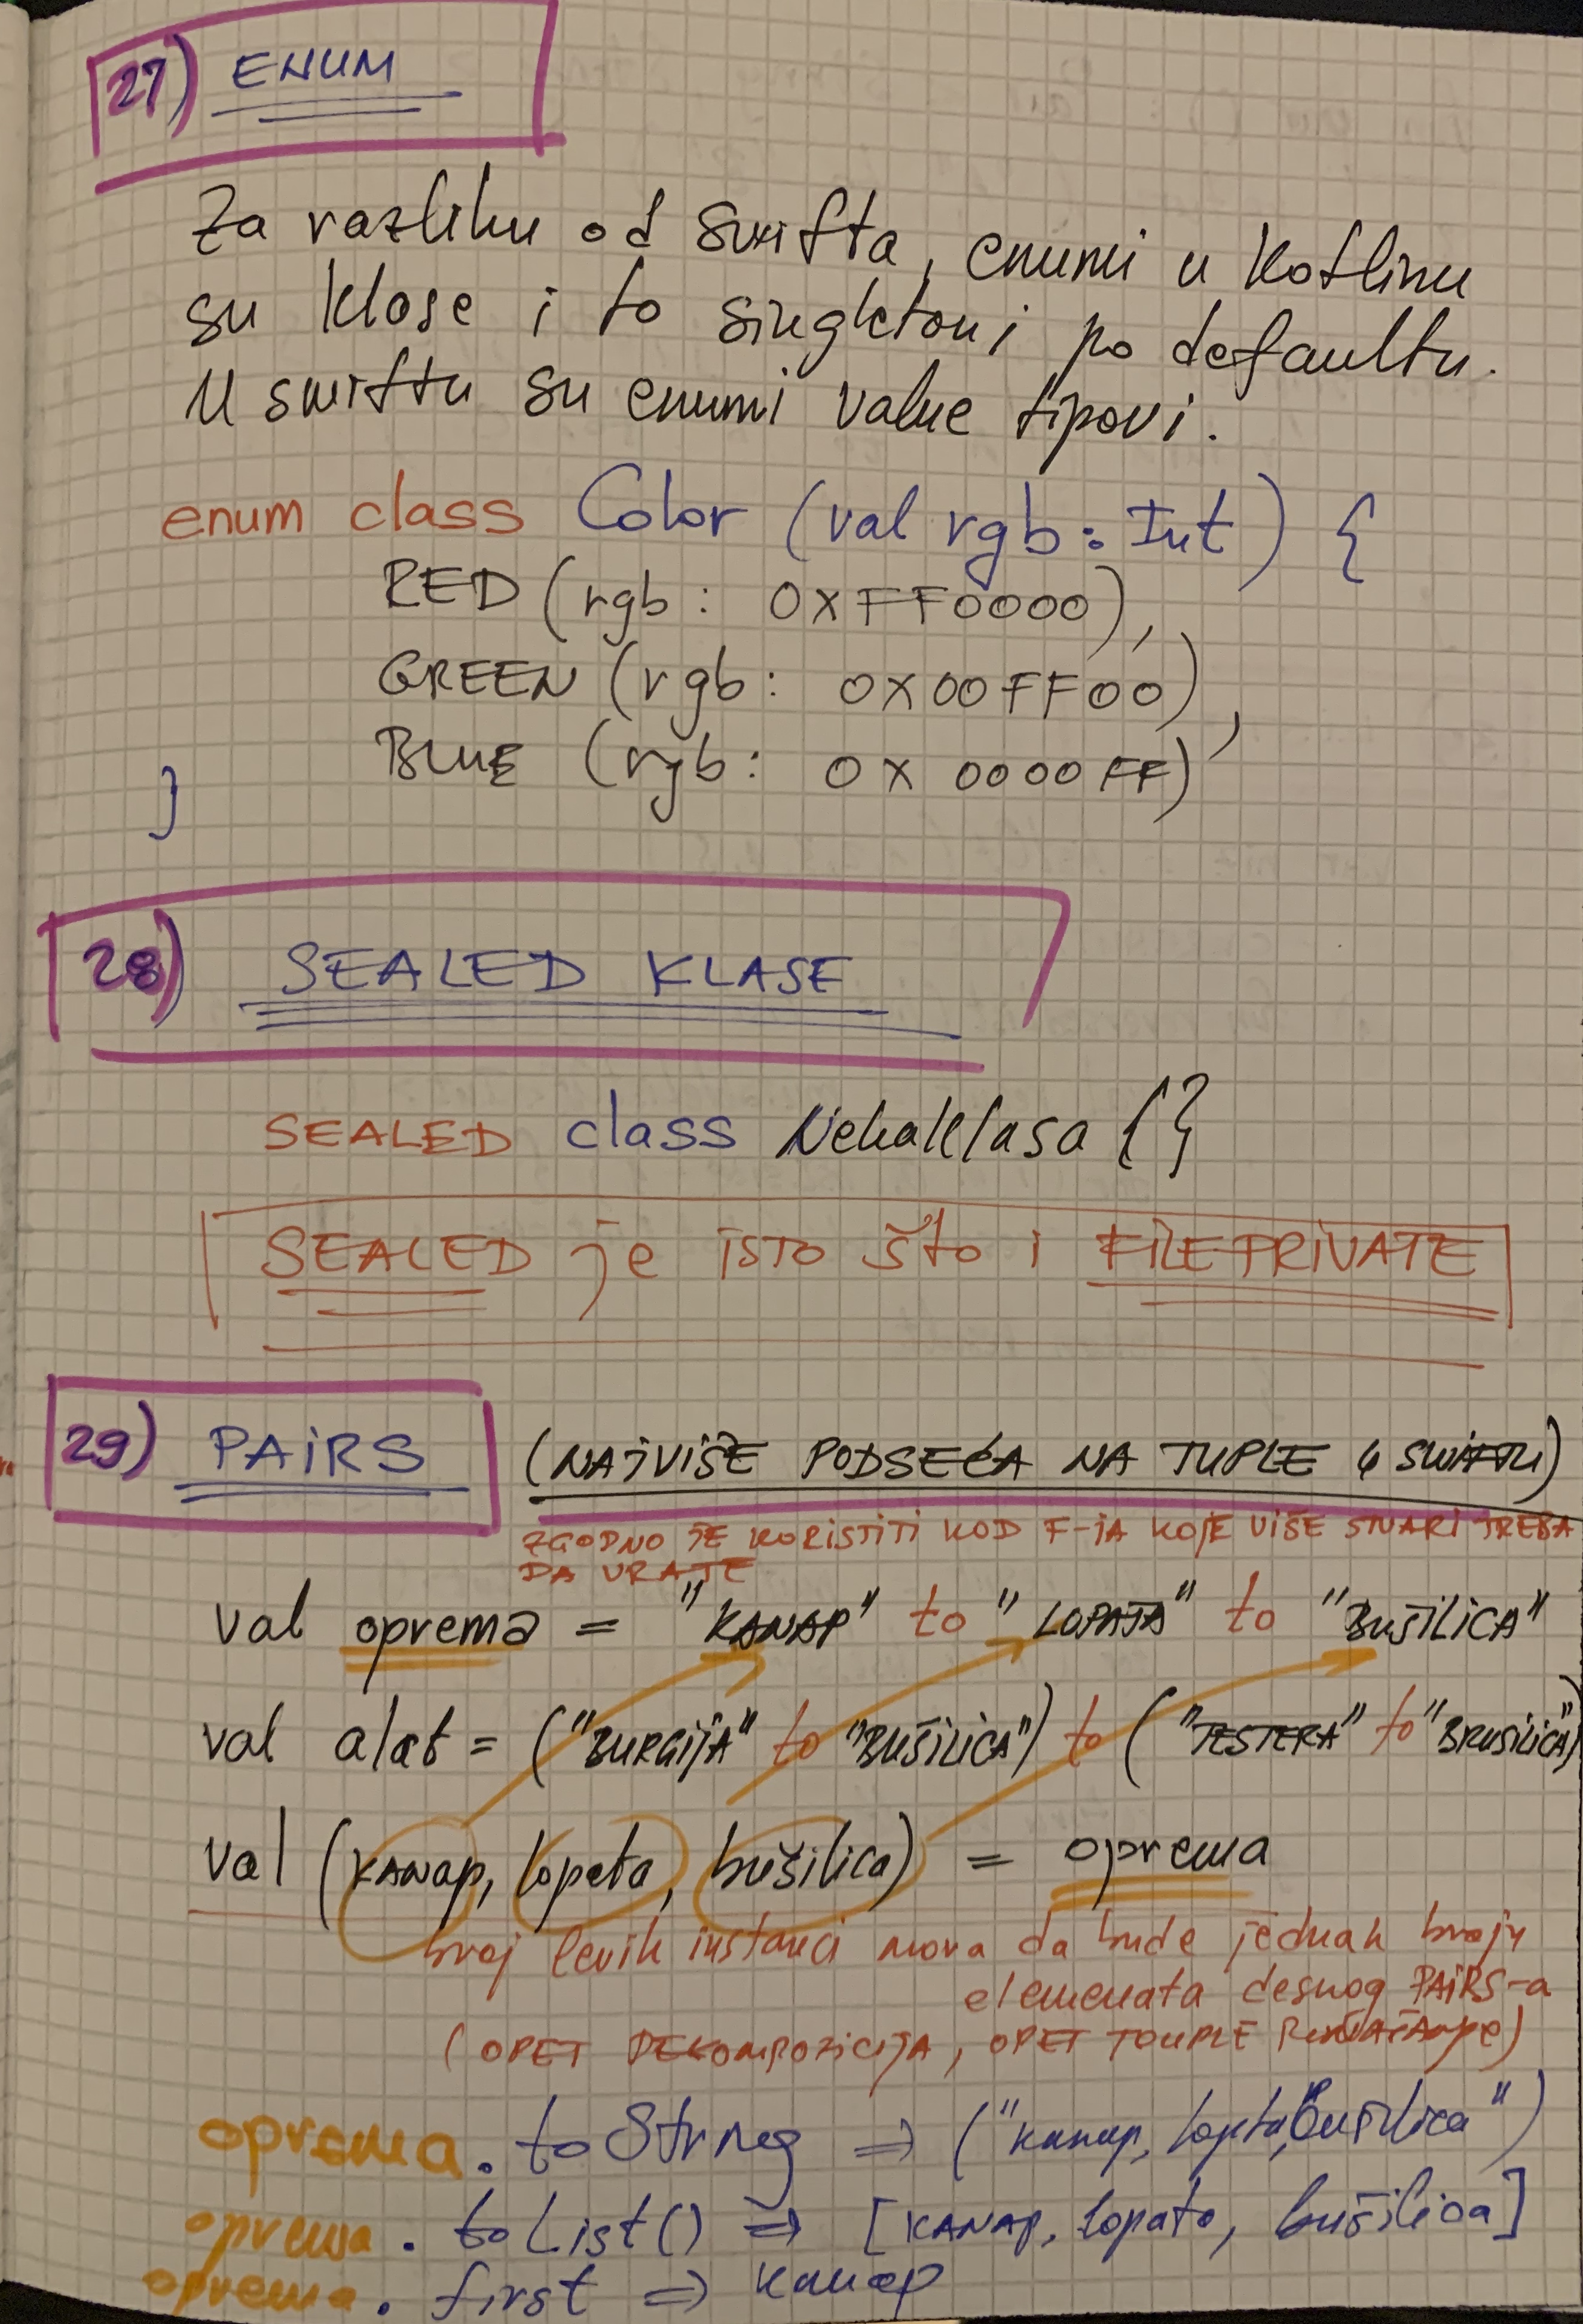 27) ENUM
Za razliku od swifta, enumi u Kotlinu
su klase i to singletoni po defaultu.
U swiftu su enumi value tipovi.
enum class Color (val rgb: Int) {
RED (rgb: 0XFF0000),
GREEN (rgb: 0X00FF00),
BLUE (rgb: 0X0000FF)
}
28) SEALED KLASE
SEALED class NekaKlasa {}
SEALED je isto što i FILEPRIVATE
29) PAIRS (NAJVIŠE PODSEĆA NA TUPLE U SWIFTU)
ZGODNO JE KORISTITI KOD F-JA KOJE VIŠE STVARI TREBA
DA VRATE
val oprema = "KANAP" to "LOPATA" to "BUŠILICA"
val alat = ("BURGIJA" to "BUŠILICA") to ("TESTERA" to "BRUSILICA")
val (KANAP, lopata, bušilica) = oprema
broj levih instanci mora da bude jednak broju
elemenata desnog PAIRS-a
(OPET DEKOMPOZICIJA, OPET TOUPLE)
oprema.toString => ("kanap, lopta, bušilica")
oprema.toList() => [KANAP, lopata, bušilica]
oprema.first => kanap